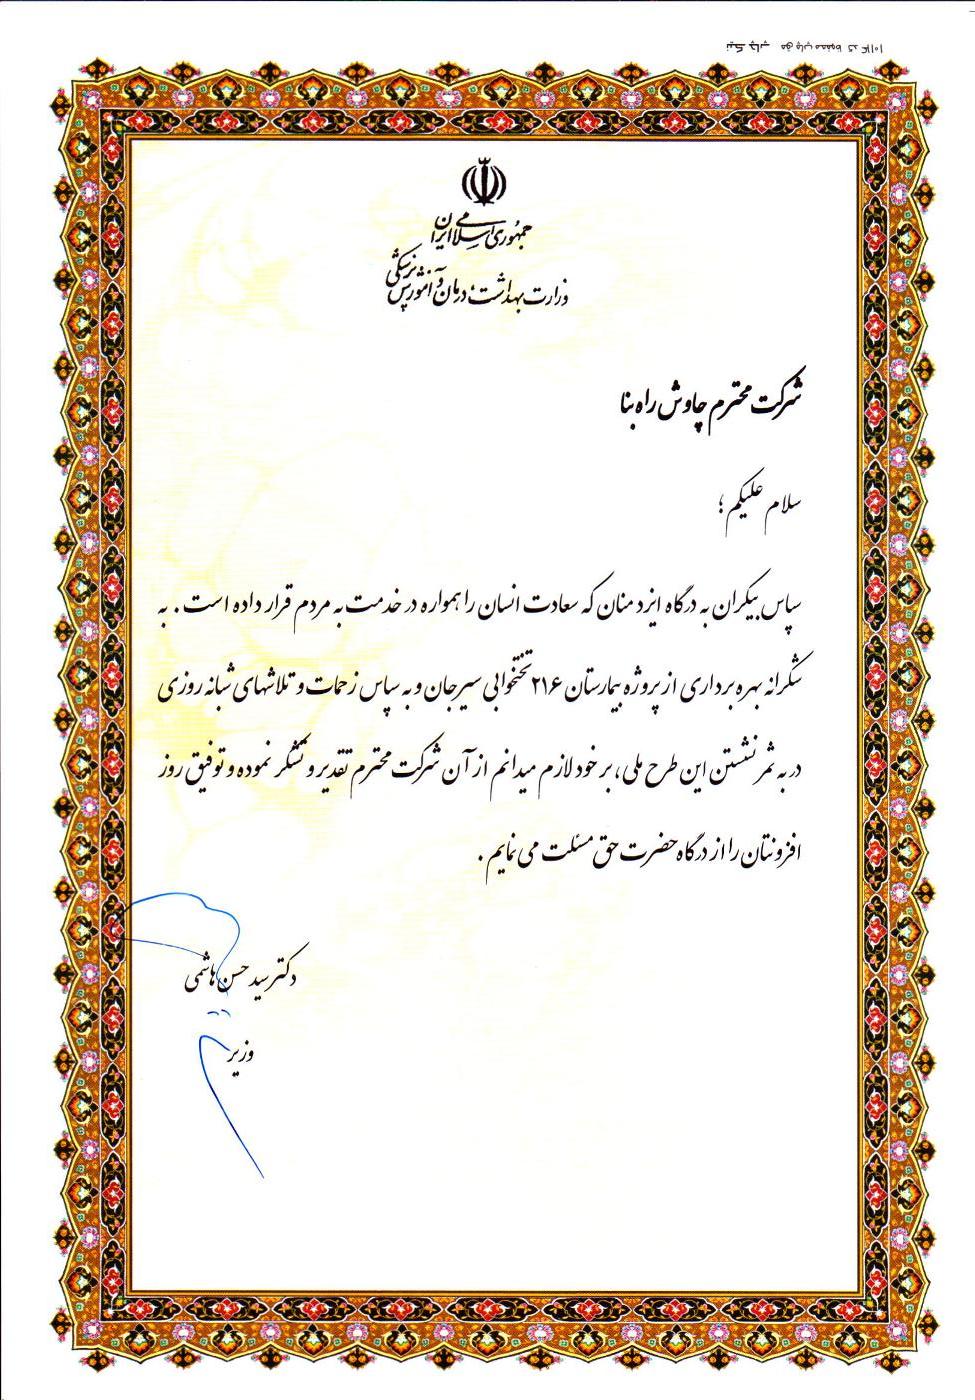 جمهوری اسلامی ایران
وزارت بهداشت، درمان و آموزش پزشکی
شرکت محترم چاوش راه بنا
سلام علیکم؛
سپاس بیکران به درگاه ایزد منان که سعادت انسان را همواره در خدمت به مردم قرار داده است. به
شکرانه بهره برداری از پروژه بیمارستان ۲۱۶ تختخوابی سیرجان و به سپاس زحمات و تلاشهای شبانه روزی
در به ثمر نشستن این طرح ملی، بر خود لازم میدانم از آن شرکت محترم تقدیر و تشکر نموده و توفیق روز
افزونتان را از درگاه حضرت حق مسئلت می نمایم.
دکتر سید حسن هاشمی
وزیر